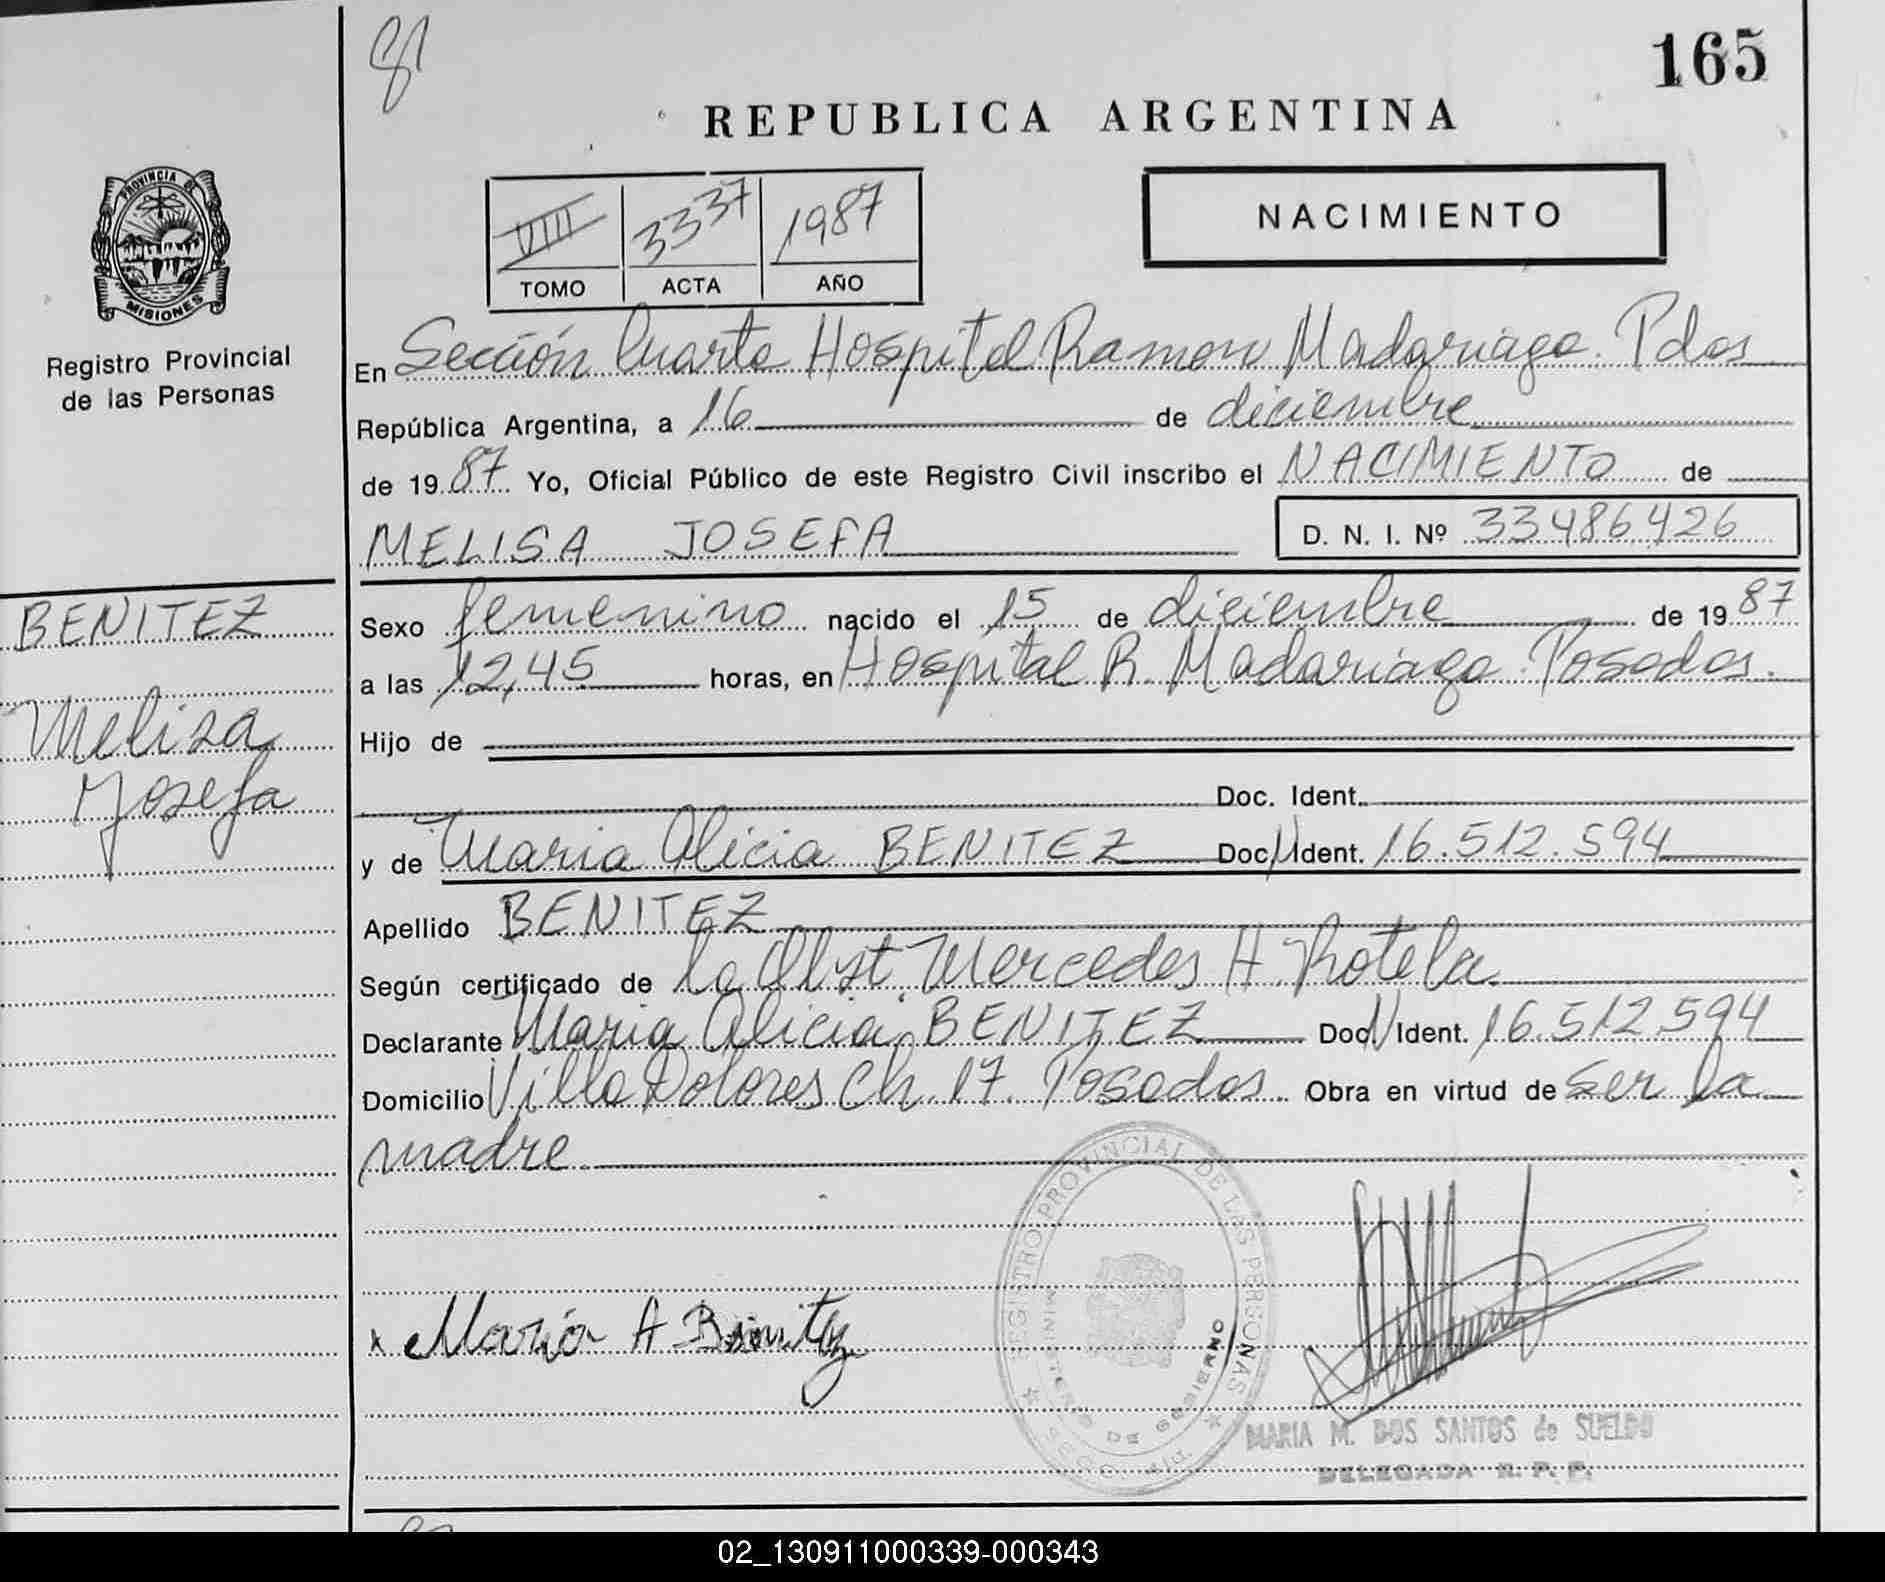 81
165
REPUBLICA ARGENTINA
PROVINCIA DE
MISIONES
Registro Provincial
de las Personas
VIII 3337 1987
TOMO ACTA AÑO
NACIMIENTO
En Sección Cuarta Hospital Ramon Madariaga. Pdas
República Argentina, a 16 de diciembre
de 1987 Yo, Oficial Público de este Registro Civil inscribo el NACIMIENTO de
MELISA JOSEFA D. N. I. Nº 33486426
BENITEZ
Melisa
Josefa
Sexo femenino nacido el 15 de diciembre de 1987
a las 12,45 horas, en Hospital R. Madariaga. Posadas.
Hijo de
Doc. Ident.
y de Maria Alicia BENITEZ Doc. Ident. 16.512.594
Apellido BENITEZ
Según certificado de la Obst. Mercedes H. Rotela
Declarante Maria Alicia BENITEZ Doc. Ident. 16.512.594
Domicilio Villa Dolores Ch. 17. Posadas. Obra en virtud de ser la
madre
REGISTRO PROVINCIAL DE LAS PERSONAS
MINISTERIO DE GOBIERNO
x Maria A Benitez
MARIA M. DOS SANTOS de SUELDO
DELEGADA R. P. P.
02_130911000339-000343